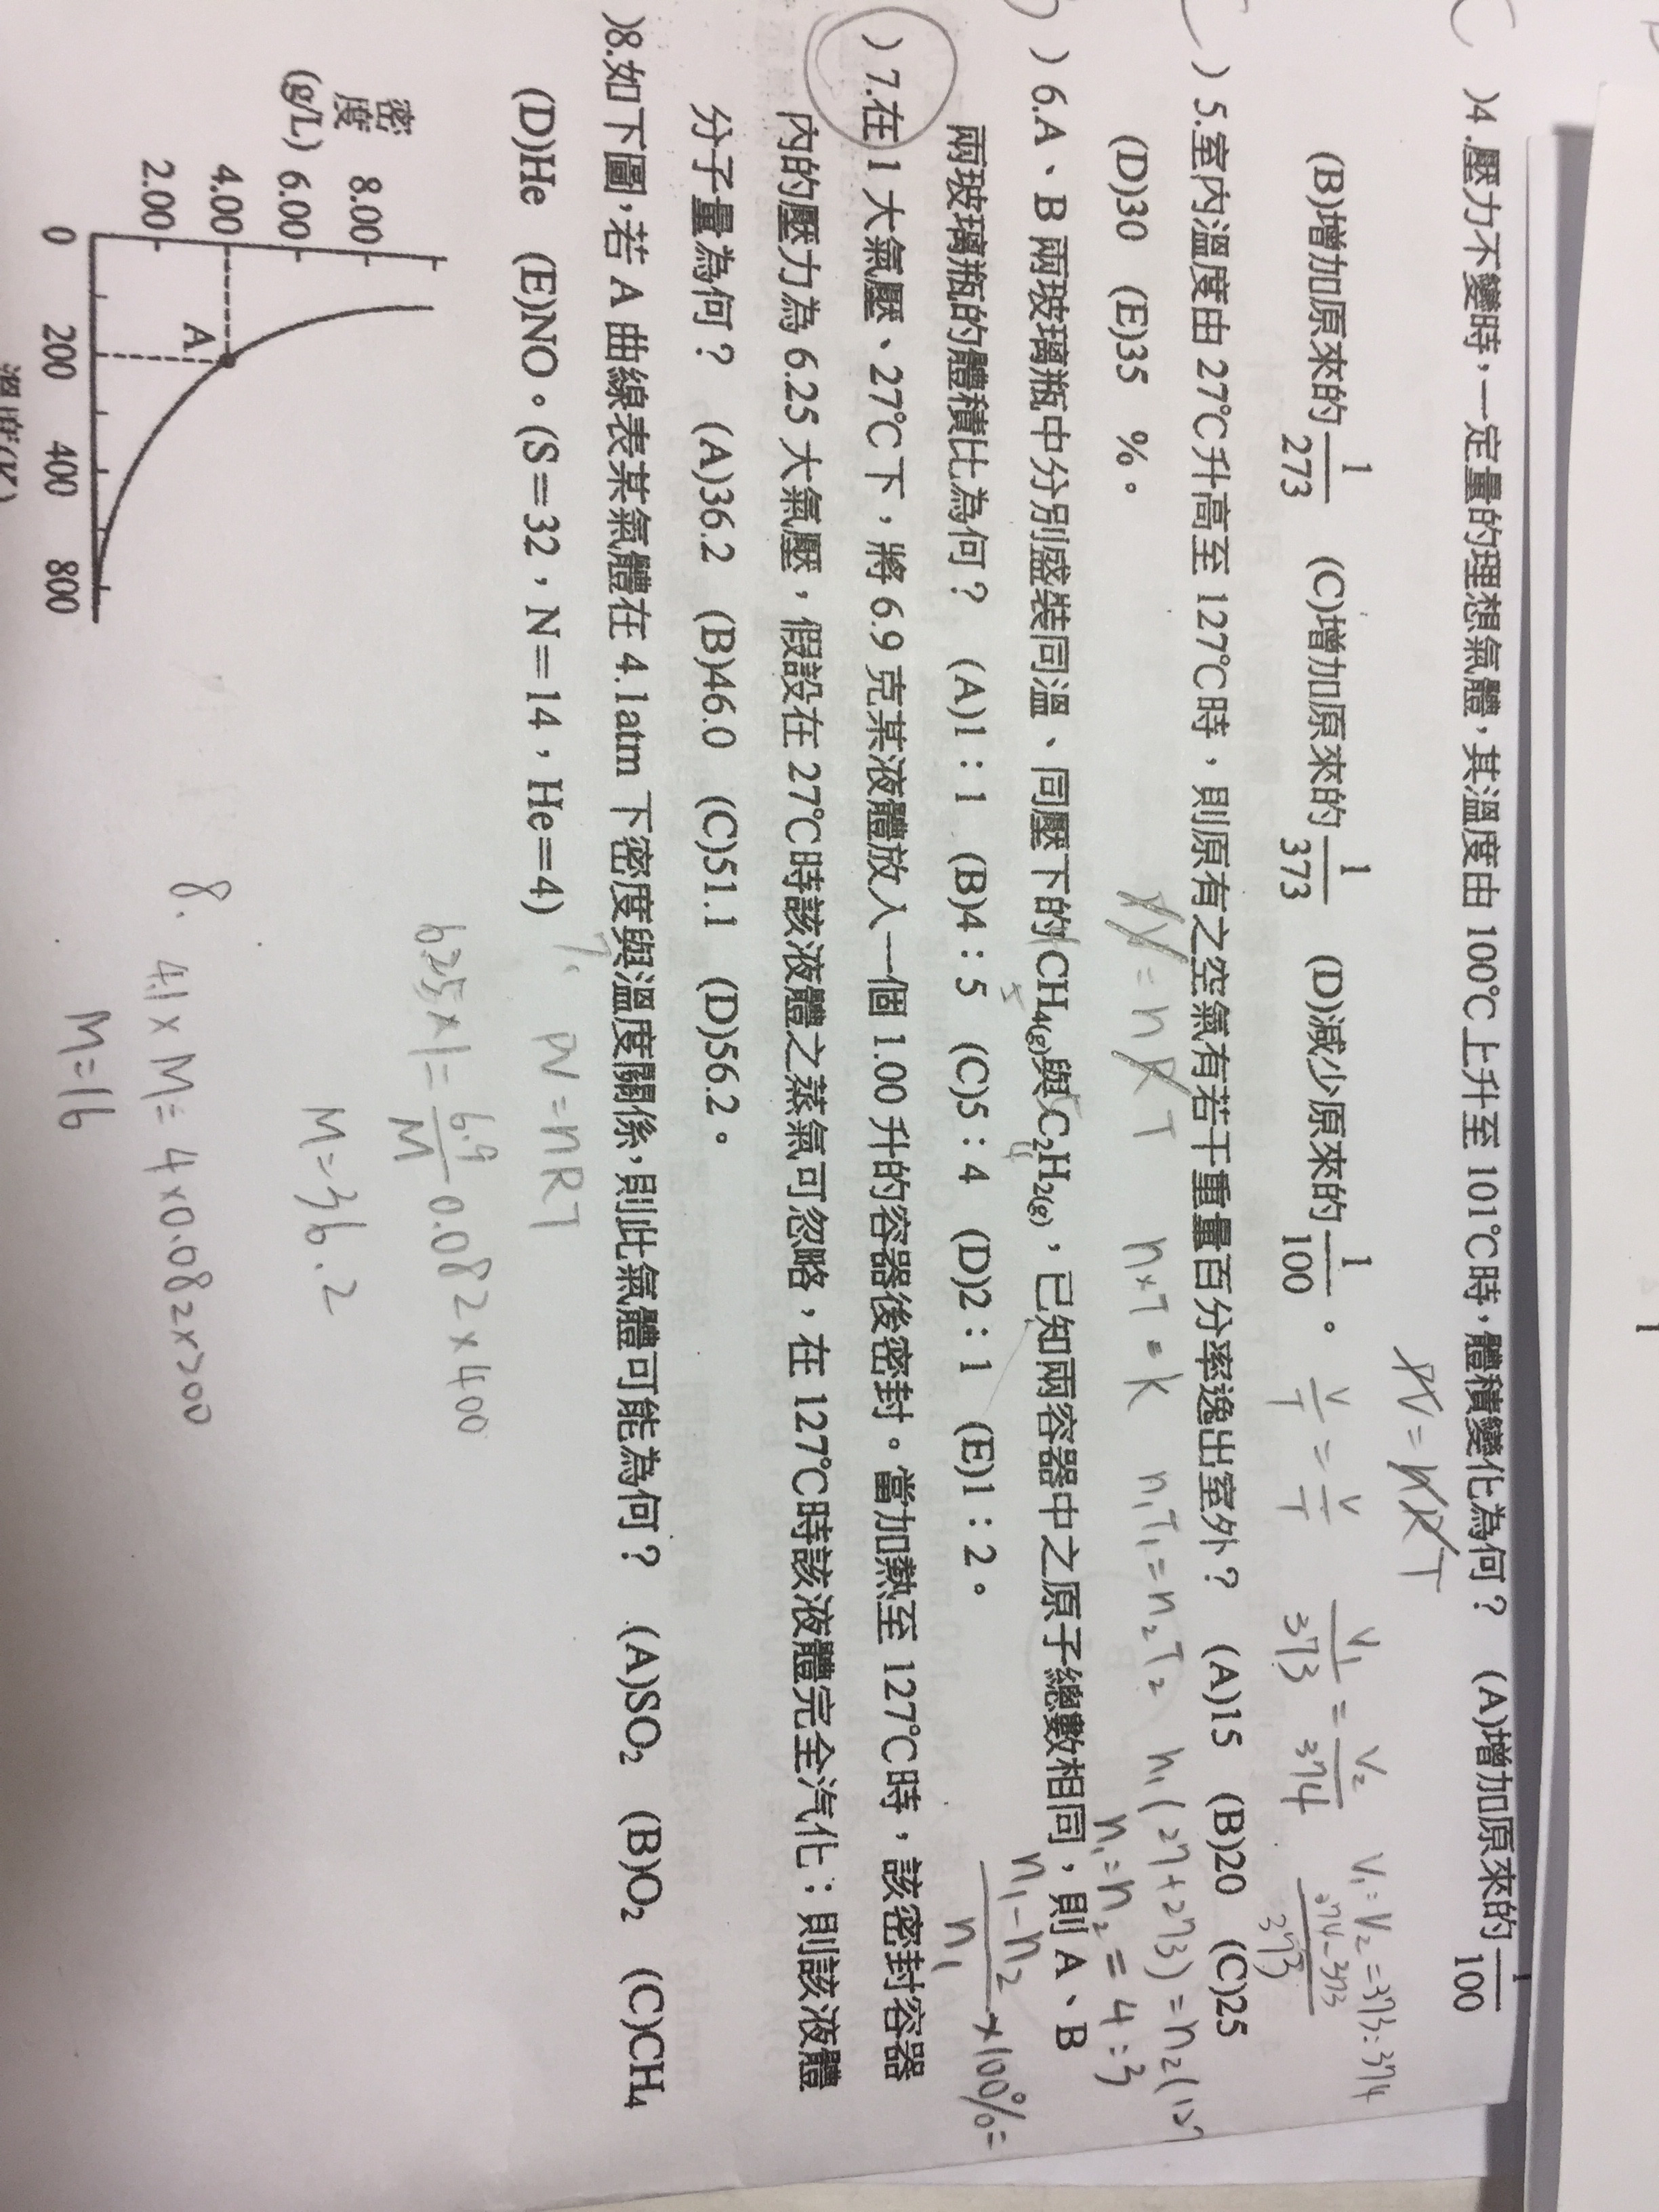 )4.壓力不變時,一定量的理想氣體,其溫度由 100℃上升至 101℃時,體積變化為何? (A)增加原來的 1/100
PV=nRT
(B)增加原來的 1/273 (C)增加原來的 1/373 (D)減少原來的 1/100 。
V/T = V/T V₁/373 = V₂/374 V₁:V₂=373:374
374-373/373
)5.室內溫度由 27℃升高至 127℃時,則原有之空氣有若干重量百分率逸出室外? (A)15 (B)20 (C)25
(D)30 (E)35 %。
PV=nRT n×T=k n₁T₁=n₂T₂ n₁(27+273)=n₂(127
n₁=n₂=4:3
n₁-n₂/n₁ ×100%=
)6.A、B 兩玻璃瓶中分別盛裝同溫、同壓下的 CH₄(g)與 C₂H₂(g),已知兩容器中之原子總數相同,則 A、B
兩玻璃瓶的體積比為何? (A)1:1 (B)4:5 (C)5:4 (D)2:1 (E)1:2。
)7.在 1 大氣壓、27℃下,將 6.9 克某液體放入一個 1.00 升的容器後密封。當加熱至 127℃時,該密封容器
內的壓力為 6.25 大氣壓,假設在 27℃時該液體之蒸氣可忽略,在 127℃時該液體完全汽化;則該液體
分子量為何? (A)36.2 (B)46.0 (C)51.1 (D)56.2。
)8.如下圖,若 A 曲線表某氣體在 4.1atm 下密度與溫度關係,則此氣體可能為何? (A)SO₂ (B)O₂ (C)CH₄
(D)He (E)NO。(S=32,N=14,He=4)
7. PV=nRT
6.25×1= 6.9/M 0.082×400
M=36.2
8. 4.1×M=4×0.082×200
M=16
密度
(g/L)
8.00
6.00
4.00
2.00
A
0 200 400 800
溫度(K)